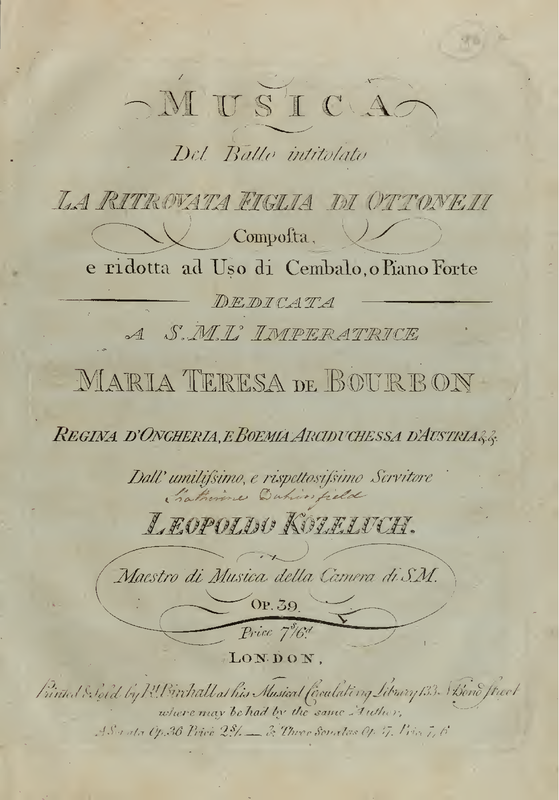 MUSICA
Del Ballo intitolato
LA RITROVATA FIGLIA DI OTTONE II
Compoſta,
e ridotta ad Uso di Cembalo, o Piano Forte
DEDICATA
A S.M.L' IMPERATRICE
MARIA TERESA DE BOURBON
REGINA D'ONGHERIA, E BOEMIA ARCIDUCHESSA D'AUSTRIA &&.
Dall' umiliſsimo, e rispettosiſsimo Servitore
Katherine Dukinfield
LEOPOLDO KOZELUCH.
Maestro di Musica della Camera di S.M.
Op. 39.
Price 7s/6d
LONDON,
Printed & Sold by at his Musical Circulating Library 133. Bond Street
where may be had by the same Author,
A Sonata Op. 36 Price — & Three Sonatas Op.